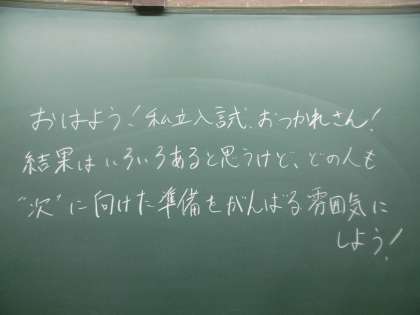 おはよう!私立入試、おつかれさん!
結果はいろいろあると思うけど、どの人も
"次"に向けた準備をがんばる雰囲気に
しよう!